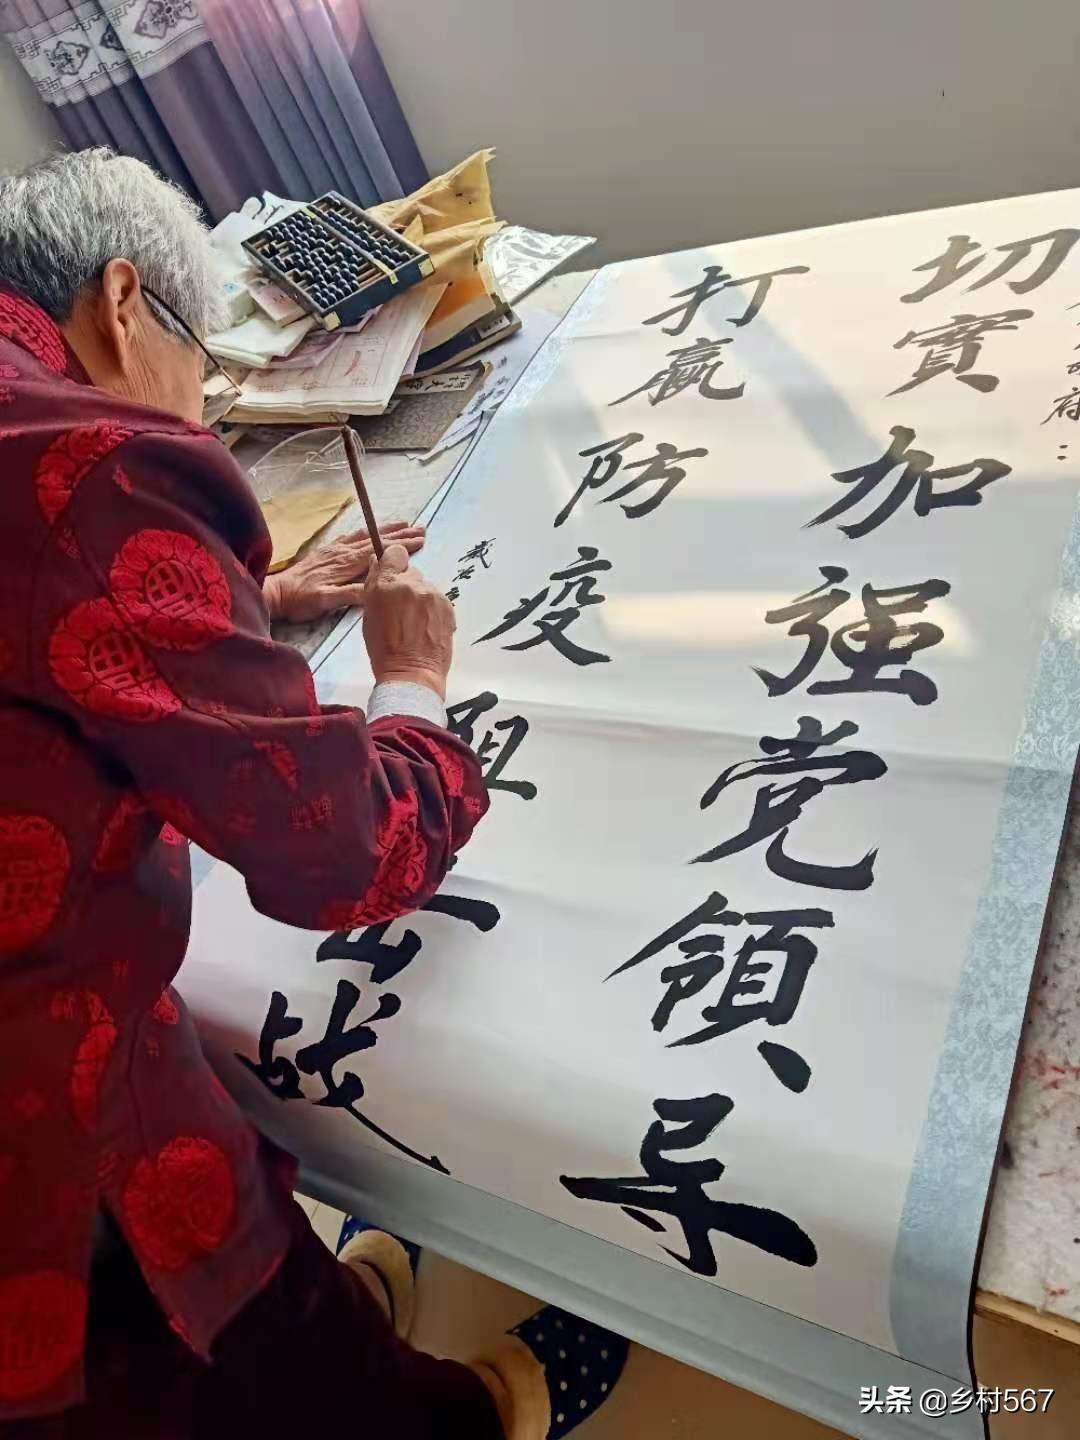 切實加强党領导
打赢防疫阻击战
头条 @乡村567